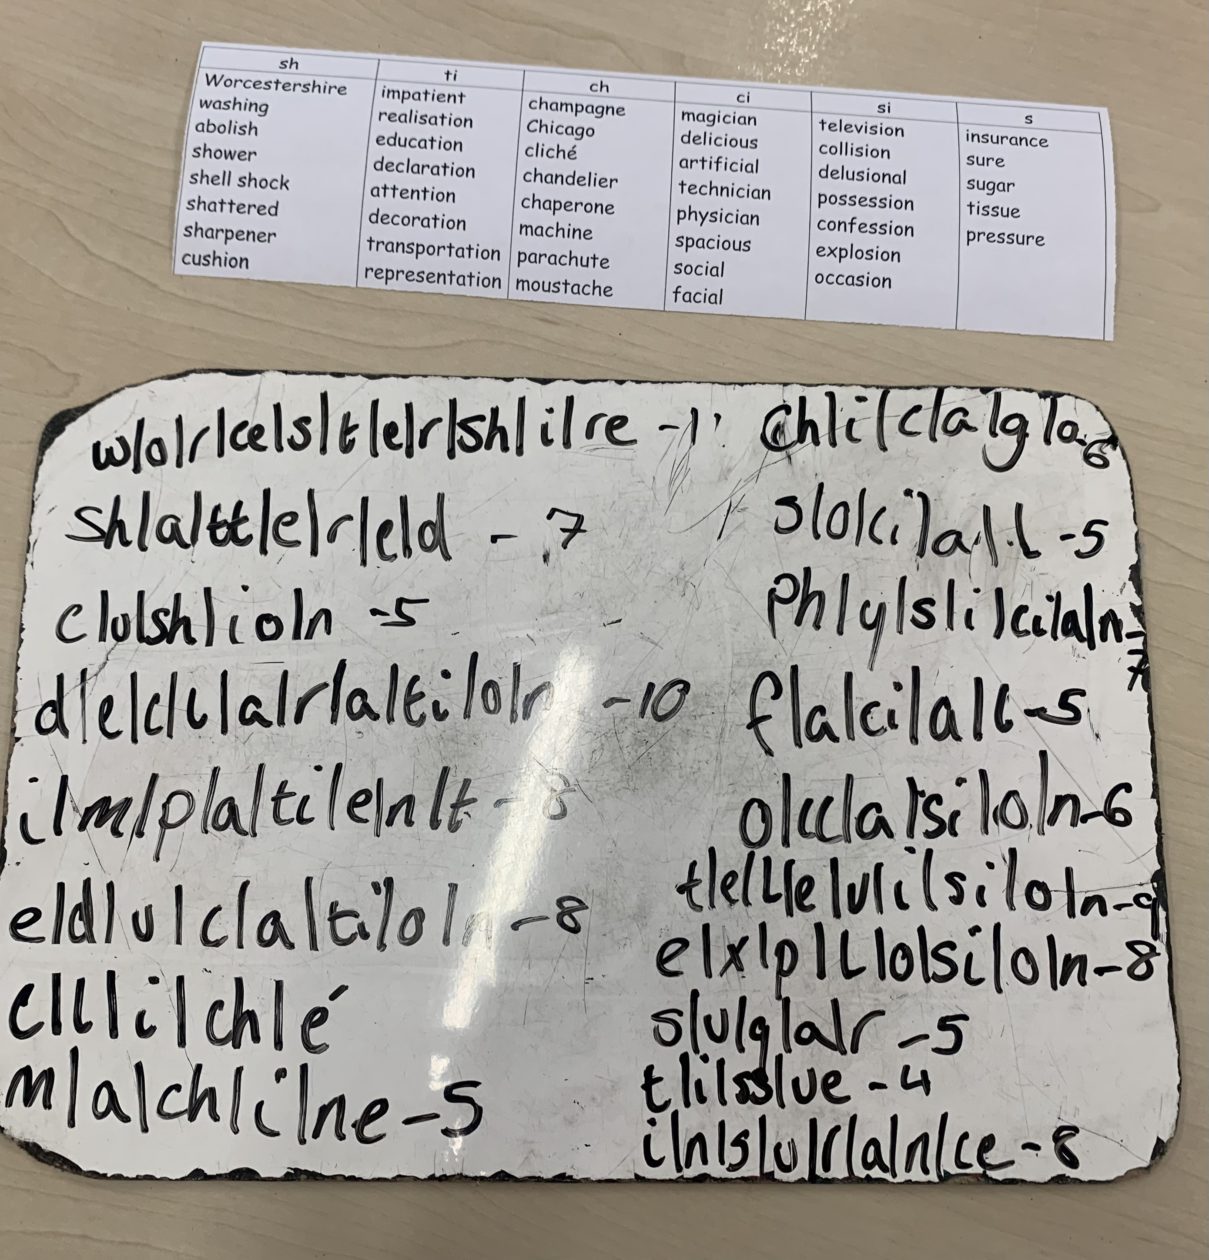 sh ti ch ci si s
Worcestershire impatient champagne magician television insurance
washing realisation Chicago delicious collision sure
abolish education cliché artificial delusional sugar
shower declaration chandelier technician possession tissue
shell shock attention chaperone physician confession pressure
shattered decoration machine spacious explosion
sharpener transportation parachute social occasion
cushion representation moustache facial
w|o|r|ce|s|t|e|r|sh|i|re -1'
sh|a|tt|e|r|e|d - 7
c|u|sh|io|n -5
d|e|c|l|a|r|a|ti|o|n -10
i|m|p|a|ti|e|n|t - 8
e|d|u|c|a|ti|o|n -8
c|l|i|ch|é
m|a|ch|i|ne -5
Ch|i|c|a|g|o -6
s|o|ci|a|l -5
Ph|y|s|i|ci|a|n -7
f|a|ci|a|l -5
o|cc|a|si|o|n -6
t|e|l|e|v|i|si|o|n -9
e|x|p|l|o|si|o|n -8
s|u|g|a|r -5
t|i|ss|ue -4
i|n|s|u|r|a|n|ce -8